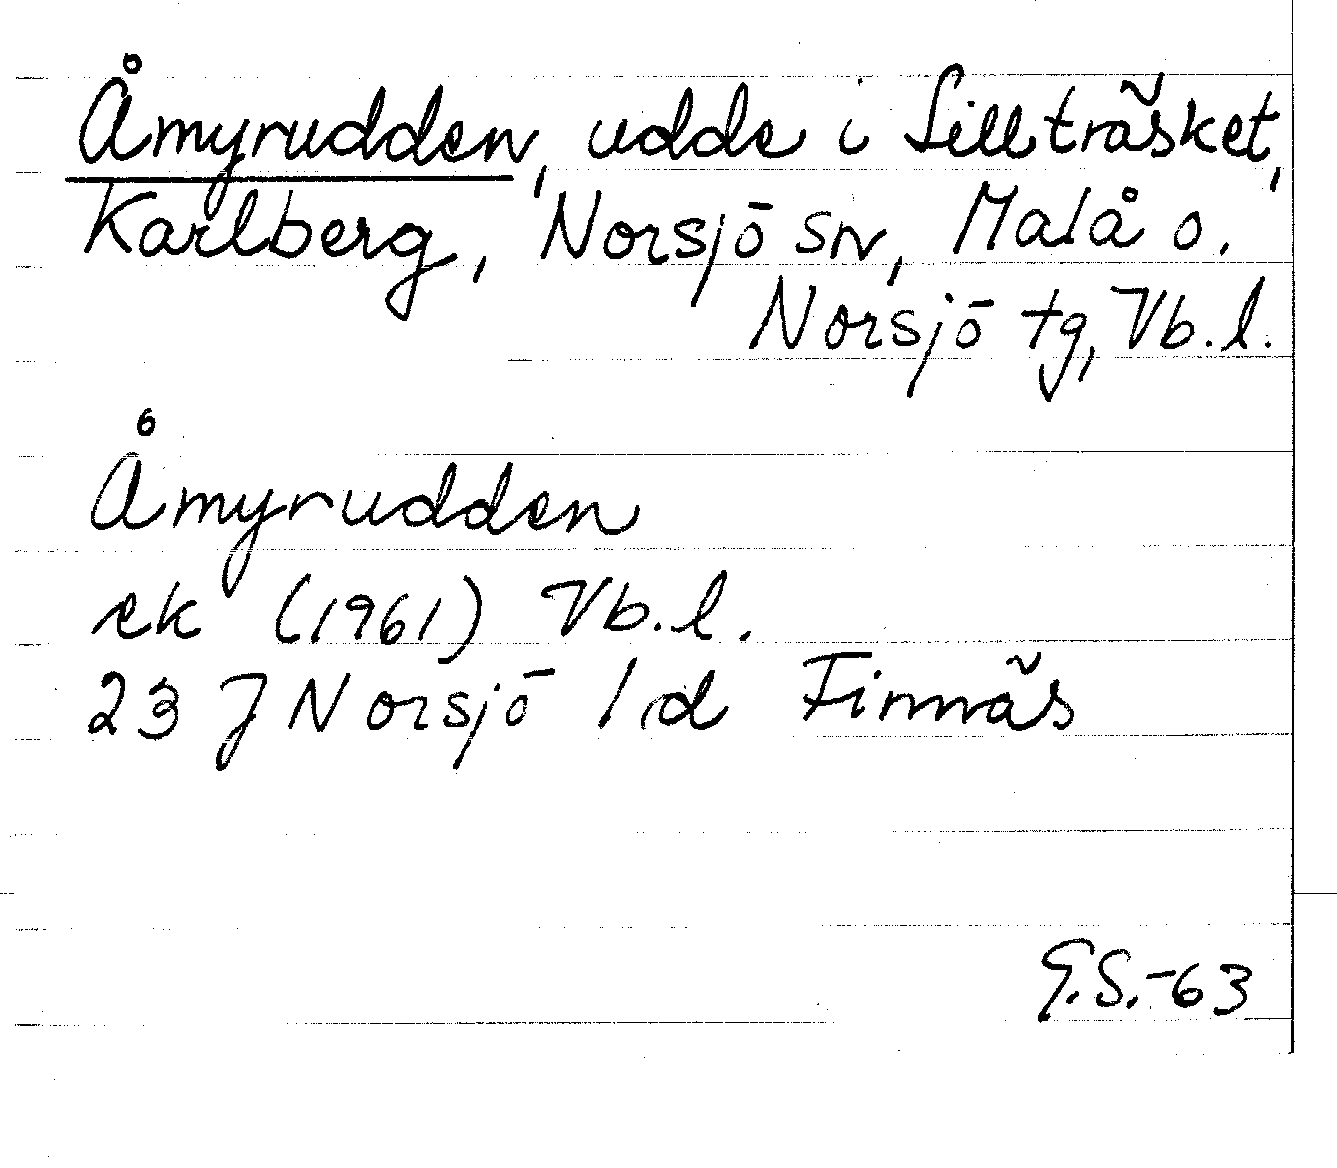 Åmyrudden, udde i Lillträsket,
Karlberg, Norsjö sn, Malå o.
Norsjö tg, Vb.l.
Åmyrudden
ek (1961) Vb.l.
23 J Norsjö 1 d Finnäs
G.S.-63